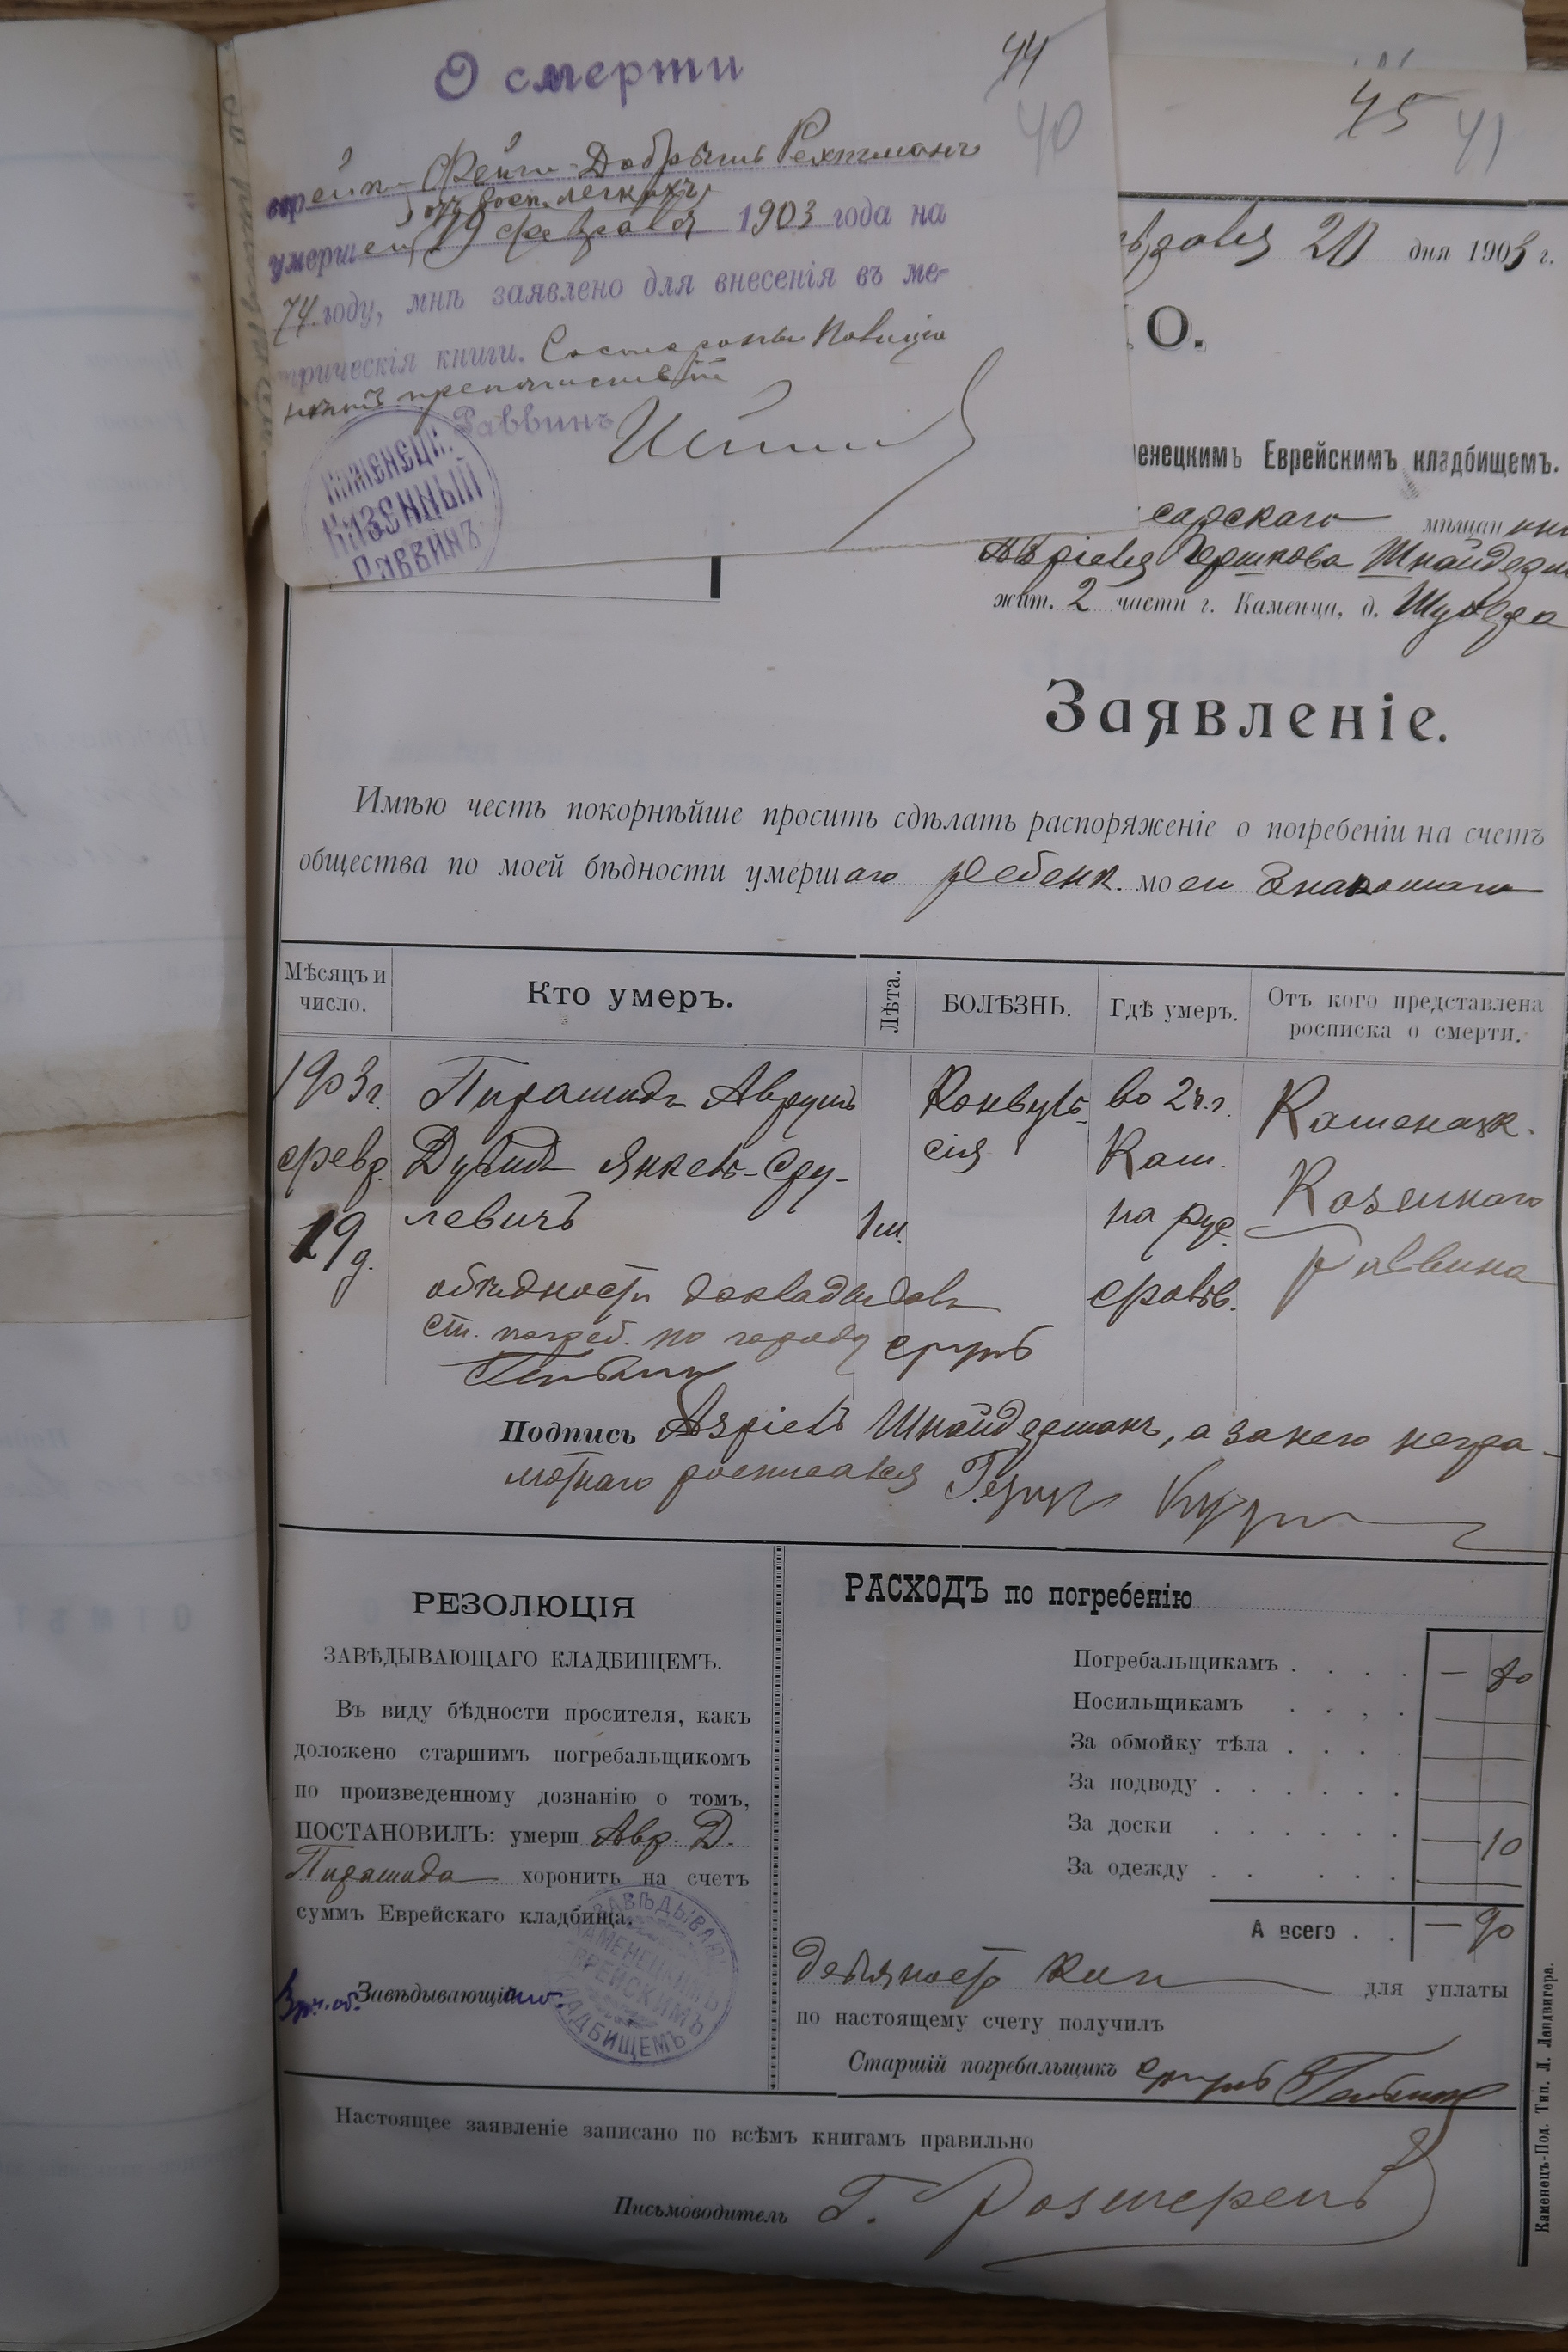 О смерти
44
40
еврейки Фейги-Добрышъ Рехтманъ
отъ восп. легкихъ
умершей 19 февраля 1903 года на
74 году, мнѣ заявлено для внесенія въ ме-
трическія книги. Со стороны полиціи
нѣтъ препятствій
Раввинъ
КАМЕНЕЦК.
КАЗЕННЫЙ
РАВВИНЪ
45
41
20 дня 1903 г.
О.
енецкимъ Еврейскимъ кладбищемъ.
сарскаго мѣщанина
Азріеля Гершкова Шнайдерм
жит. 2 части г. Каменца, д.
Заявленіе.
Имѣю честь покорнѣйше просить сдѣлать распоряженіе о погребеніи на счетъ
общества по моей бѣдности умершаго ребенк. моего знакомаго
Мѣсяцъ и число.
Кто умеръ.
Лѣта.
БОЛѢЗНЬ.
Гдѣ умеръ.
Отъ кого представлена росписка о смерти.
1903 г.
февр.
19 д.
Пирамидъ Аврумъ
Дувидъ Янкель-Сру-
левичъ
1 м.
Конвуль-
сія
во 2 ч. г.
Кам.
на рус.
фольв.
Каменецк.
Казеннаго
Раввина
о бѣдности докладывалъ
ст. погреб. по городу Сруль
Подпись Азріель Шнайдерманъ, а за него негра-
мотнаго росписался
РЕЗОЛЮЦІЯ
ЗАВѢДЫВАЮЩАГО КЛАДБИЩЕМЪ.
Въ виду бѣдности просителя, какъ
доложено старшимъ погребальщикомъ
по произведенному дознанію о томъ,
ПОСТАНОВИЛЪ: умерш Авр. Д.
Пирамида хоронить на счетъ
суммъ Еврейскаго кладбища.
Вр. и. об. Завѣдывающій
ЗАВѢДЫВАЮЩ
КАМЕНЕЦКИМЪ
ЕВРЕЙСКИМЪ
КЛАДБИЩЕМЪ
РАСХОДЪ по погребенію
Погребальщикамъ . . . . — 80
Носильщикамъ . . . .
За обмойку тѣла . . . .
За подводу . . . . . .
За доски . . . . . . — 10
За одежду . . . . . .
А всего . . — 90
девяносто коп для уплаты
по настоящему счету получилъ
Старшій погребальщикъ Сруль
Настоящее заявленіе записано по всѣмъ книгамъ правильно
Письмоводитель Г.
Каменецъ-Под. Тип. Л. Ландвигера.